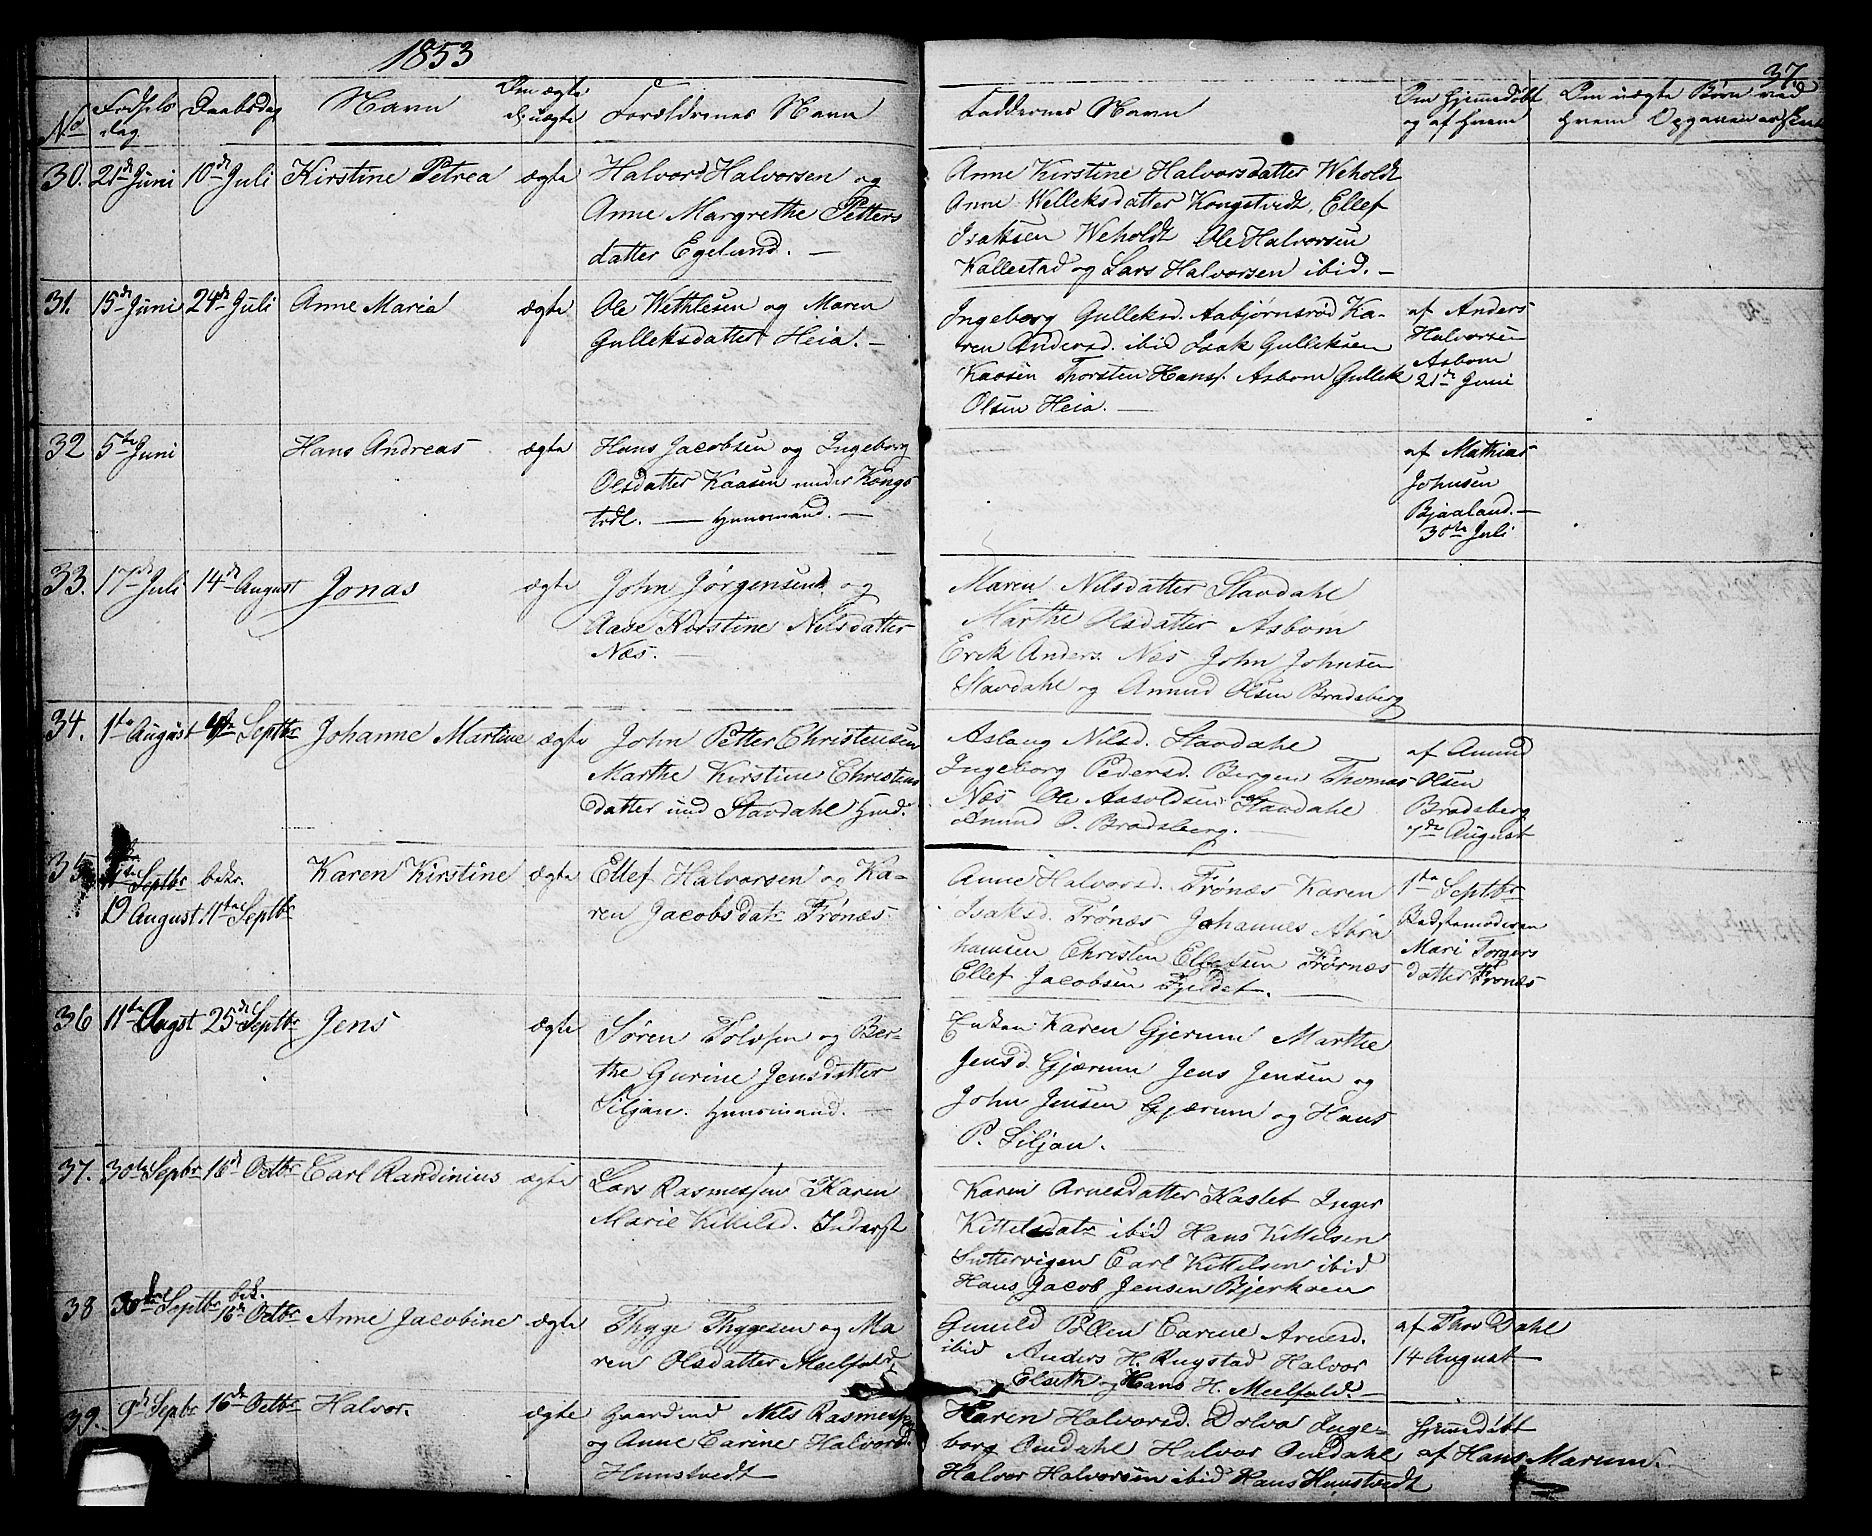 1853
37.
No Fødsels dag Daabsdag Navn Om ægte el. uægte Forældrenes Navn Faddernes Navn Om hjemmedøbt og af hvem Om uægte Børn ved hvem Opgaven er skeet
30. 21de Juni 10de Juli Kirstine Petrea ægte Halvor Halvorsen og
Anne Margrethe Petters
datter Egelund. —
Anne Kirstine Halvorsdatter Weholdt
Anne Welleksdatter Kongstvedt, Ellef
Isaksen Weholdt Ole Halvorsen
Kallestad og Lars Halvorsen ibid. —
31. 15de Juni 24de Juli Anne Maria ægte Ole Wethlesen og Maren
Gulleksdatter Heia. —
Ingeborg Gulleksd. Aabjørnsrød Ka-
ren Andersd. ibid Isak Gulleksen
Kaasen Thorsten Hans. Asbom Gullek
Olsen Heia. —
af Anders
Halvorsen
Asbom
21de Juni
32 5te Juni Hans Andreas ægte Hans Jacobsen og Ingeborg
Olsdatter Kaasen under Kongs
tvdt. — Huusmand. —
af Mathias
Johnsen
Bjaaland. —
30te Juli
33. 17de Juli 14de August Jonas ægte John Jørgensen og
Aase Kirstine Nilsdatter
Næs. —
Maren Nilsdatter Stavdahl
Marthe Olsdatter Asbom
Erik Anders. Næs John Johnsen
Stavdahl og Amund Olsen Bradsberg
34. 1te August 4de Septbr Johanne Martine ægte John Petter Christensen
Marthe Kirstine Christens
datter und Stavdahl Hmd.
Aslaug Nilsd. Stavdahl
Ingeborg Pedersd. Bergen Thomas
Næs Ole Aasoldsen Stavdahl
Amund O. Bradsberg. —
af Amund
Olsen
Bradsberg
7de August
35 11te Septbr bekr. Karen Kirstine ægte Ellef Halvorsen og Ka-
19 August 11te Septbr
ren Jacobsdatr Frønæs
Anne Halvorsd. Frønæs Karen
Isaksd. Frønæs Johannes Abra
hamsen Christen Ellefsen Frørnæs
Ellef Jacobsen Fjeldet. —
1te Septbr
Mari Torgers
datter Frønæs
36 11te Augst 25de Septbr Jens ægte Søren Tolvsen og Ber-
the Gurine Jensdatter
Siljan. Huusmand. —
Enken Karen Gjerum Marthe
Jensd. Gjærum Jens Jensen og
John Jensen Gjærum og Hans
P. Siljan. —
37. 30te Septbr 16de Octbr Carl Randinius ægte Lars Rasmessen Karen
Marie Kittilsd.
Karen Arnesdatter Kaslet Inger
Kittelsdatr ibid Hans Kittilsen
Suttervigen Carl Kittelsen ibid
Hans Jacob Jensen Bjerkoen
38 30te Septbr bek. 16de Octbr Anne Jacobine ægte Thyge Thygesen og Ma
ren Olsdatter Meelfald
Gunild Carine Arnesd.
ibid Anders H. Rugstad Halvor
Elseth og Hans H. Meelfald. —
af Thor Dahl
14 August
39. 9de Septbr 16de Octbr Halvor. ægte Gaardmd Nils Rasmessen
og Anne Carine Halvorsd.
Hunstvedt
Karen Halvorsd. Dolva Inge-
borg Omdahl Halvor Omdahl
Halvor Halvorsen ibid Hans Hunstvedt
hjemmedøbt
af Hans Marum.